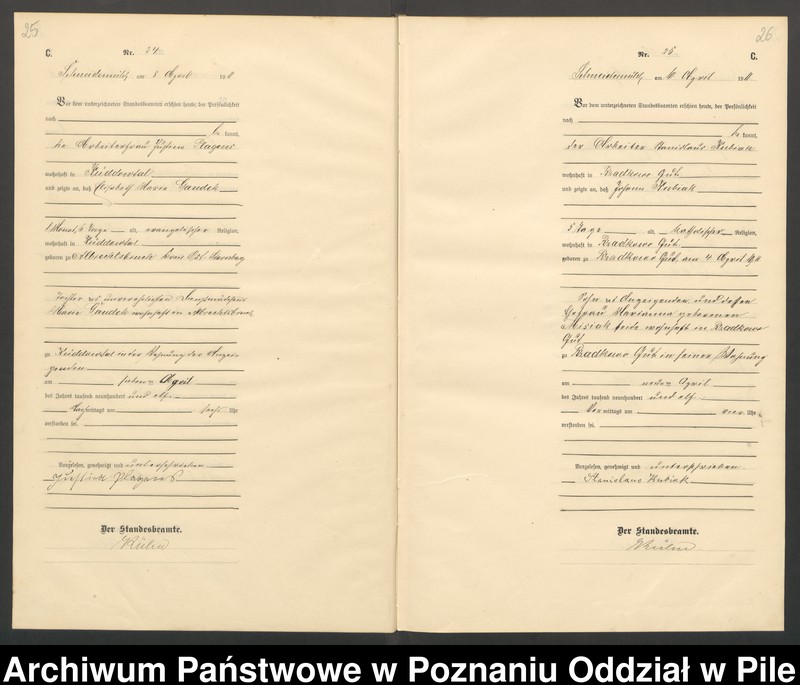 25
C.
Nr. 24
Schneidemühl am 8 April 19 11
Vor dem unterzeichneten Standesbeamten erschien heute, der Persönlichkeit
nach
be kannt,
die Arbeiterfrau
wohnhaft in Küddowtal
und zeigte an, daß Maria Gandek
1 Monat, Tage alt, evangelischer Religion,
wohnhaft in Küddowtal
geboren zu
Tochter der unverehelichten Dienstmädchens
Maria Gandek wohnhaft in
zu Küddowtal in der Wohnung der Anzei-
genden
am sieben April
des Jahres tausend neunhundert und elf
Nachmittags um sechs Uhr
verstorben sei.
Vorgelesen, genehmigt und unterschrieben
Justine Plagens
Der Standesbeamte.
26
Nr. 25
C.
Schneidemühl, am April 19 11
Vor dem unterzeichneten Standesbeamten erschien heute, der Persönlichkeit
nach
be kannt,
der Arbeiter Stanislaus Kubiak
wohnhaft in Radkowo Gut
und zeigte an, daß Johann Kubiak
5 Tage alt, katholischer Religion,
wohnhaft in Radkowo Gut
geboren zu Radkowo Gut, am 4 April
Sohn des Anzeigenden und dessen
Ehefrau Marianna geborenen
Misiak beide wohnhaft in Radkowo
Gut
zu Radkowo Gut in seiner Wohnung
am neun April
des Jahres tausend neunhundert und elf
Vor mittags um vier Uhr
verstorben sei.
Vorgelesen, genehmigt und unterschrieben
Stanislaus Kubiak
Der Standesbeamte.
Archiwum Państwowe w Poznaniu Oddział w Pile